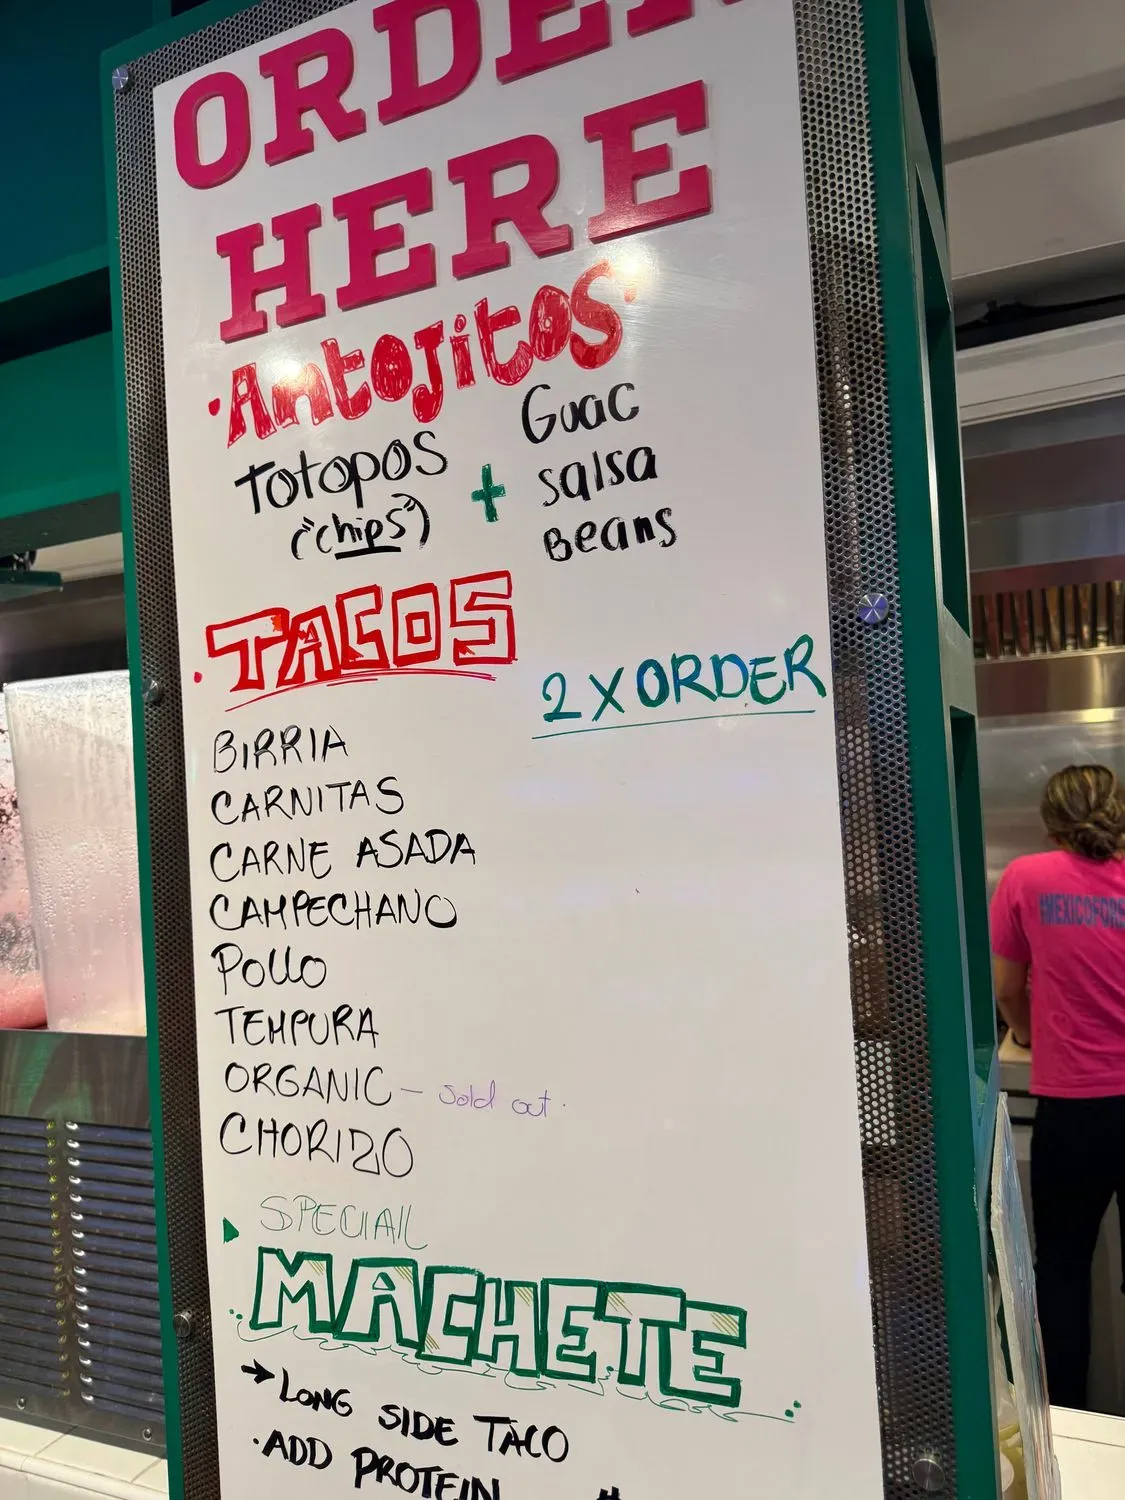 ORDER
HERE
·Antojitos·
Totopos
("chips")
+
Guac
salsa
Beans
·TACOS
2 X ORDER
BIRRIA
CARNITAS
CARNE ASADA
CAMPECHANO
POLLO
TEMPURA
ORGANIC – sold out.
CHORIZO
SPECIAL
MACHETE
→ LONG SIDE TACO
·ADD PROTEIN